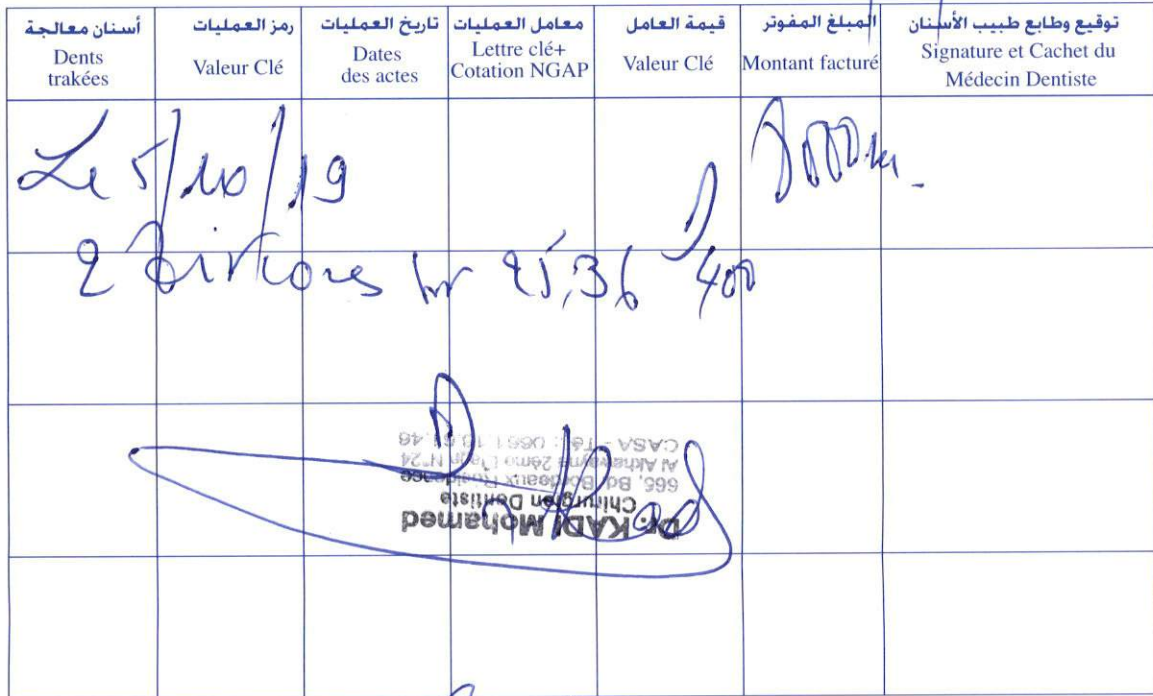 أسنان معالجة
Dents
trakées
رمز العمليات
Valeur Clé
تاريخ العمليات
Dates
des actes
معامل العمليات
Lettre clé+
Cotation NGAP
قيمة العامل
Valeur Clé
المبلغ المفوتر
Montant facturé
توقيع وطابع طبيب الأسنان
Signature et Cachet du
Médecin Dentiste
Le 5/10/19
2 Zircones
400
Dr. KADI Mohamed
Chirurgien Dentiste
665, Bd. Bordeaux Résidence
2ème N°24
CASA - Tél : 0661